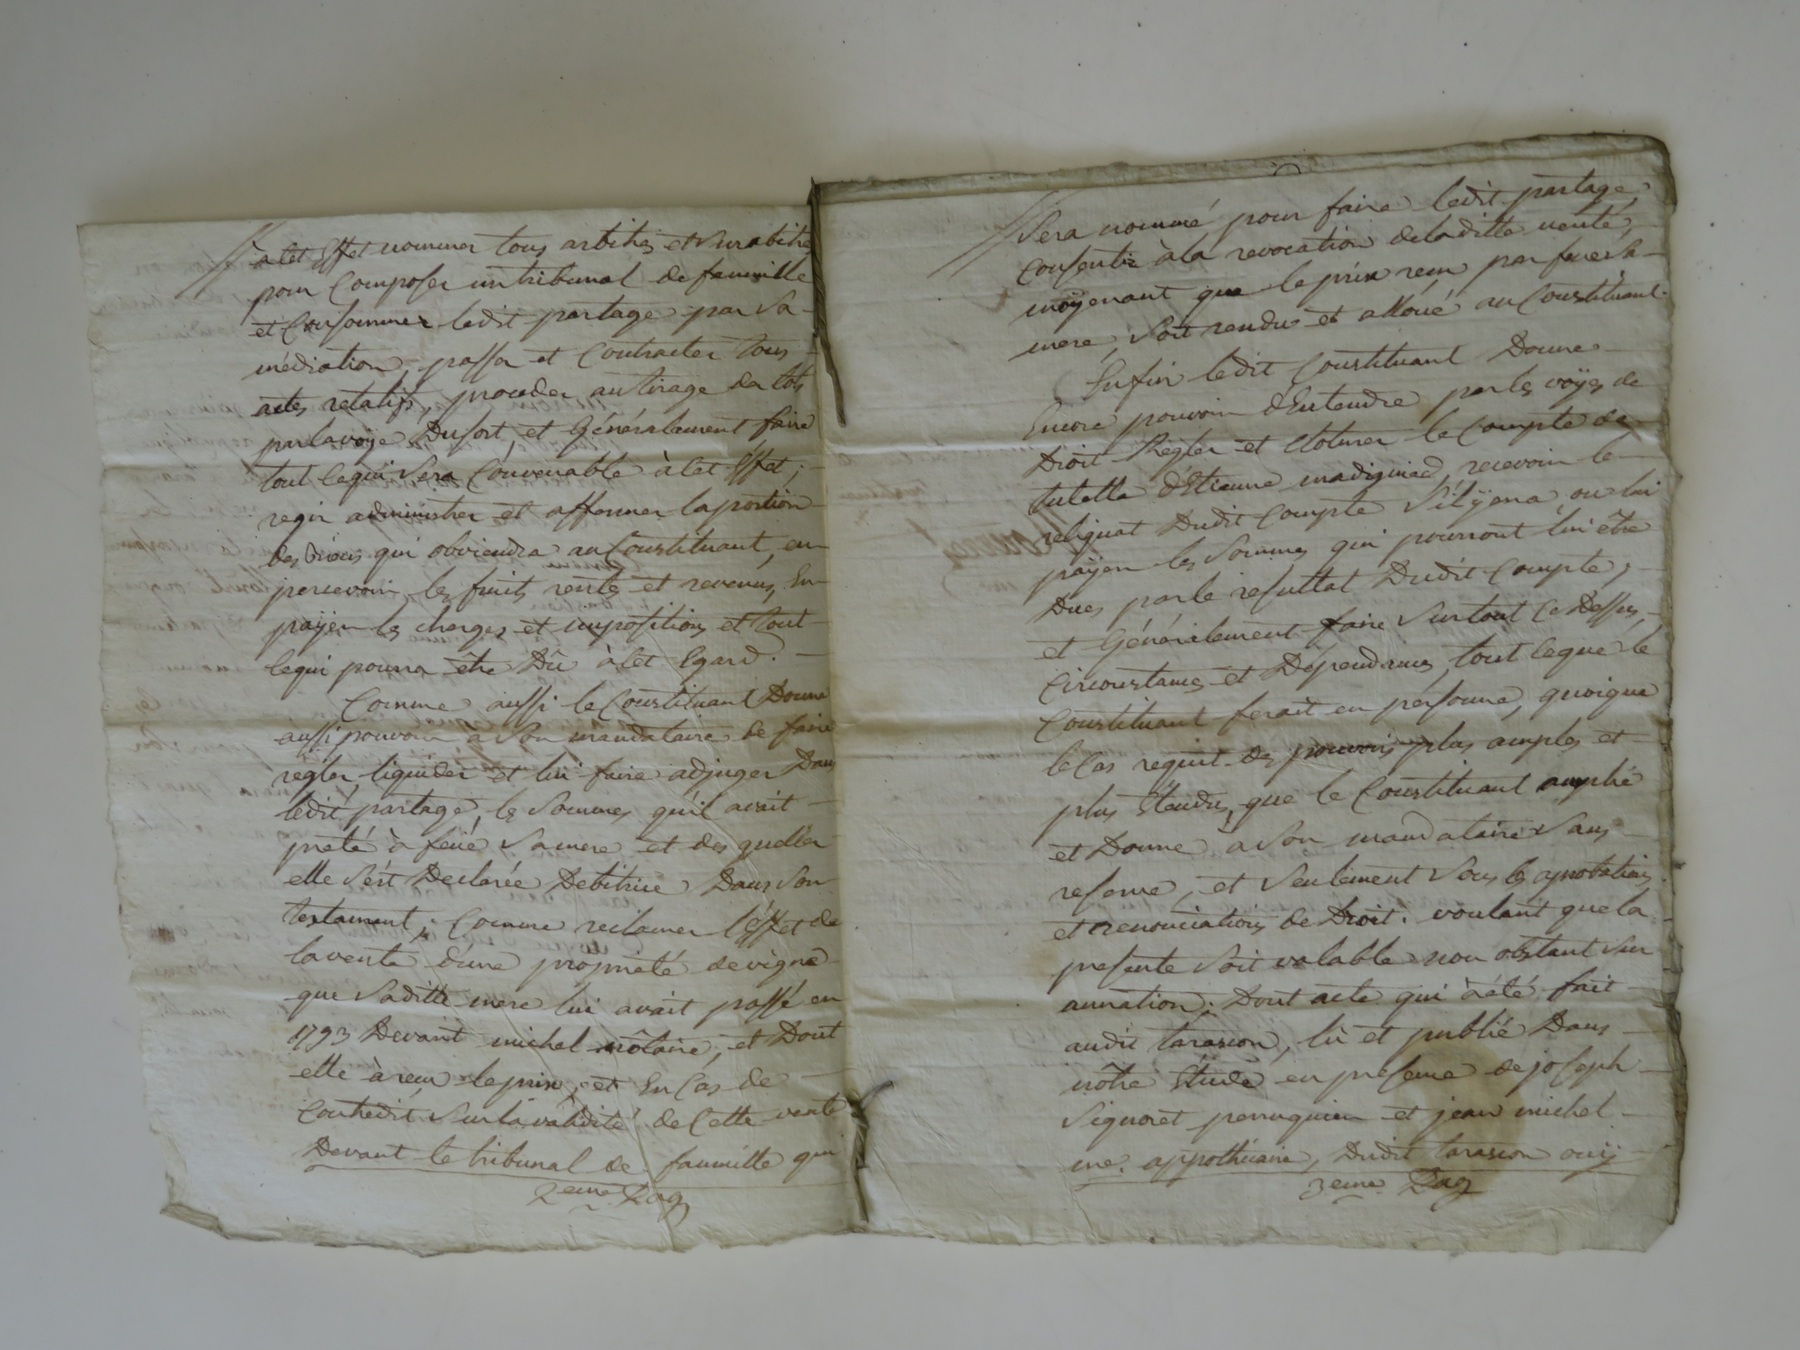 à Cet Effet nommer tous arbitres et surabitre
pour Composer un tribunal de famille
et Consommer ledit partage par sa
médiation, passer et Contracter tous
actes relatifs, proceder au tirage des lots
par la voÿe Du sort, et Généralement faire
tout Ce qui sera Convenable à Cet Effet;
regir administrer et affermer la portion
des biens qui obviendra au Constituant, en
percevoir les fruits rentes et revenus, En
païjer les charges et impositions et tout
Ce qui pourra être Dû à Cet Egard.
Comme aussi le Constituant Donne
aussi pouvoir à Son mandataire de faire
regler liquider et lui faire adjuger Dans
ledit partage, les Sommes qu'il avait
preté à feüe Sa mere et des quelles
elle s'est Declarée Debitrice Dans Son
testament; Comme reclamer l'Effet de
la vente d'une propriété de vigne
que Saditte mere lui avait passé en
1793 Devant michel nôtaire, et Dont
elle à reçu le prix, et En Cas de
Contredit Sur la validité de Cette vente
Devant le tribunal de famille qui
2eme Pag
Sera nommé pour faire ledit partage,
Consentir à la revocation de laditte vente,
moÿenant que le prix reçu par feue Sa
mere, Soit rendu et alloué au Constituant.
Enfin ledit Constituant Donne
Encore pouvoir d'Entendre par les voÿes de
Droit Règler et Cloturer le Compte de
tutelle d'Etienne madignied, recevoir le
reliquat Dudit Compte S'il ÿ en a, ou lui
païjer les Sommes qui pourront lui être
Dues par le resultat Dudit Compte;
et Généralement faire Sur tout Ce Dessus,
Circonstances et Dépendances, tout Ce que le
Constituant ferait en personne, quoique
le Cas requit des pouvoirs plus amples et
plus Etendus, que le Constituant amplie
et Donne à Son mandataire Sans
reserve, et Seulement Sous les aprobations
et renonciations de Droit. voulant que la
presente Soit valable non obstant Sur
annation. Dont acte qui à eté fait
audit tarascon, lû et publié Dans
nôtre Etude en presence de joseph
Signoret perruquier et jean michel
me. appothicaire, Dudit tarascon ouïj
3eme Pag